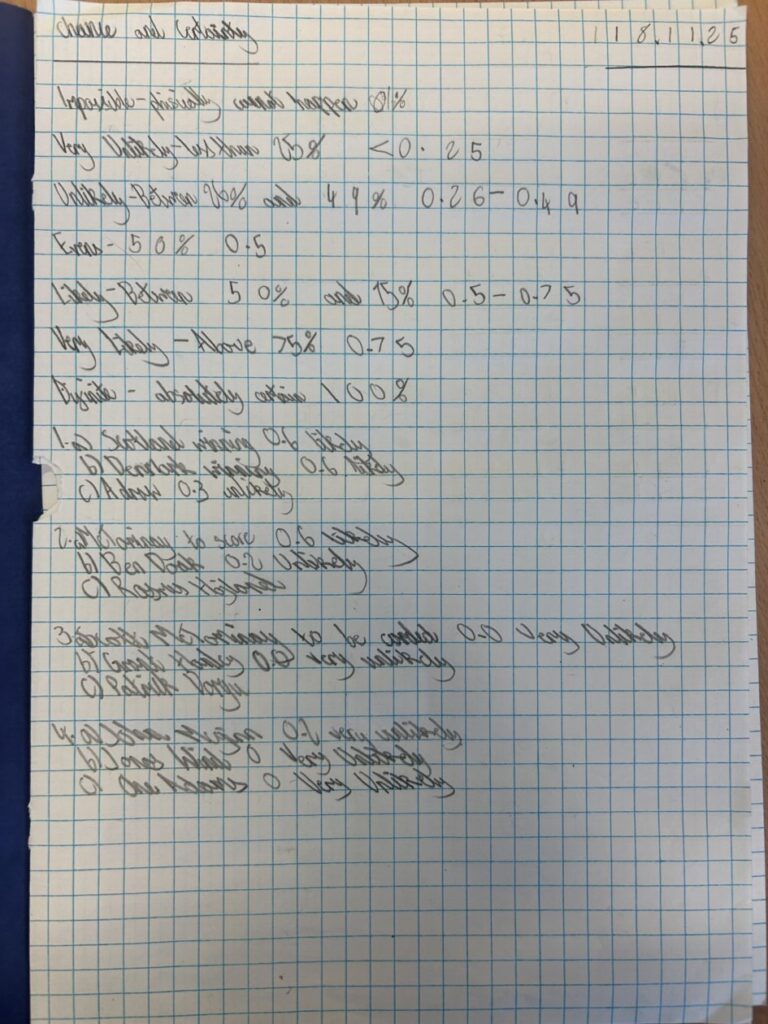 Chance and Certainty 18.11.25
Impossible - phisically cannot happen 0%
Very Unlikely - less than 25% <0.25
Unlikely - Between 26% and 49% 0.26-0.49
Evens - 50% 0.5
Likely - Between 50% and 75% 0.5-0.75
Very Likely - Above 75% 0.75
absolutely certain 100%
1.a) Scotland winning 0.6 likely
b) Denmark winning 0.6 likely
c) A draw 0.3 unlikely
2.a) McTominay to score 0.6 likely
b) Ben Doak 0.2 Unlikely
c) Rasmus
3. Scott McTominay to be carded 0.0 Very Unlikely
b) Grant Hanley 0.0 very unlikely
c) Patrick Dorgu
4.a) John McGinn 0.2 very unlikely
b) Jonas Wind 0 Very Unlikely
c) Che Adams 0 Very Unlikely